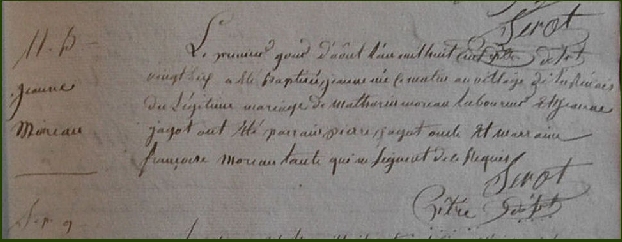 Serot
11. B
jeanne
Moreau
Le premier jour d'avril l'an mil huit cent
vingt six a été Baptisée jeanne née ce matin au village
du Légitime mariage de Mathurin moreau laboureur et jeanne
jagot ont été parrain pierre jagot oncle et marraine
françoise Moreau tante qui ne signent de ce Requis
Serot
Prêtre